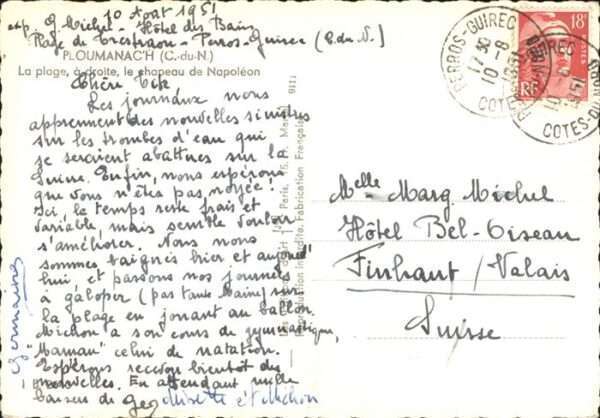 10 Août 1951
exp. G. Michel - Hôtel des Bains
Plage de Trestraou - Perros-Guirec (C.du.N.)
PLOUMANAC'H (C.-du-N.)
La plage, à droite, le chapeau de Napoléon
Chère
Les journaux nous
apprennent des nouvelles sinistres
sur les trombes d'eau qui
se seraient abattues sur la
Suisse. Enfin, nous espérons
que vous n'êtes pas noyée!
Ici, le temps reste frais et
variable, mais semble vouloir
s'améliorer. Nous nous
sommes baignés hier et aujourd'
hui, et passons nos journées
à galoper (pas Maman) sur
la plage en jouant au ballon.
Michon a son cours de gymnastique,
"Maman" celui de natation.
Espérons recevoir bientôt des
nouvelles. En attendant mille
baisers de Geo Musette et Michon
Germaine
Melle Marg. Michel
Hôtel Bel-Oiseau
Finhaut/Valais
Suisse
Paris, 15, R. Martel
Reproduction Interdite. Fabrication Française
1116
PERROS-GUIREC
17 30
10-8
1951
COTES-DU-NORD
18F
RF
POSTES